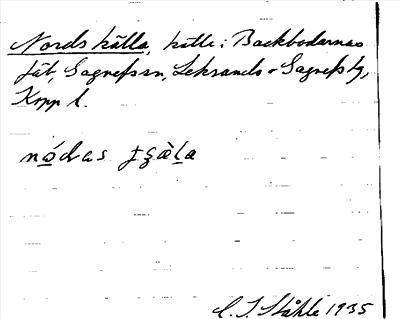 Nords källa, källe i Backbodarnas
fäb, Gagnefs sn, Leksands o Gagnefs tg,
Kopp l.
nódas ɟʒàla
C. I. Ståhle 1935